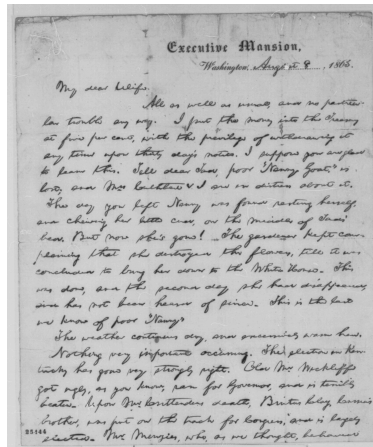 Executive Mansion,
Washington, August 8, 1863.
My dear Wife.
All as well as usual, and no particu-
lar trouble any way. I put the money into the Treasury
at five per cent, with the privilege of withdrawing it
any time upon thirty days' notice. I suppose you are glad
to learn this. Tell dear Tad, poor "Nanny Goat," is
lost; and Mrs. Cuthbert & I are in distress about it.
The day you left Nanny was found resting herself,
and chewing her little cud, on the middle of Tad's
bed. But now she's gone! The gardener kept com-
plaining that she destroyed the flowers, till it was
concluded to bring her down to the White House. This
was done, and the second day she had disappeared,
and has not been heard of since. This is the last
we know of poor "Nanny"
The weather continues dry, and excessively warm here.
Nothing very important occurring. The election in Ken-
tucky has gone very strongly right. Old Mr. Wickliffe
got ugly, as you know, ran for Governor, and is terribly
beaten. Upon Mr. Crittendens death, Brutus Clay, Cassius'
brother, was put on the track for Congress, and is largely
elected. Mr. Menzies, who, as we thought, behaved
25146